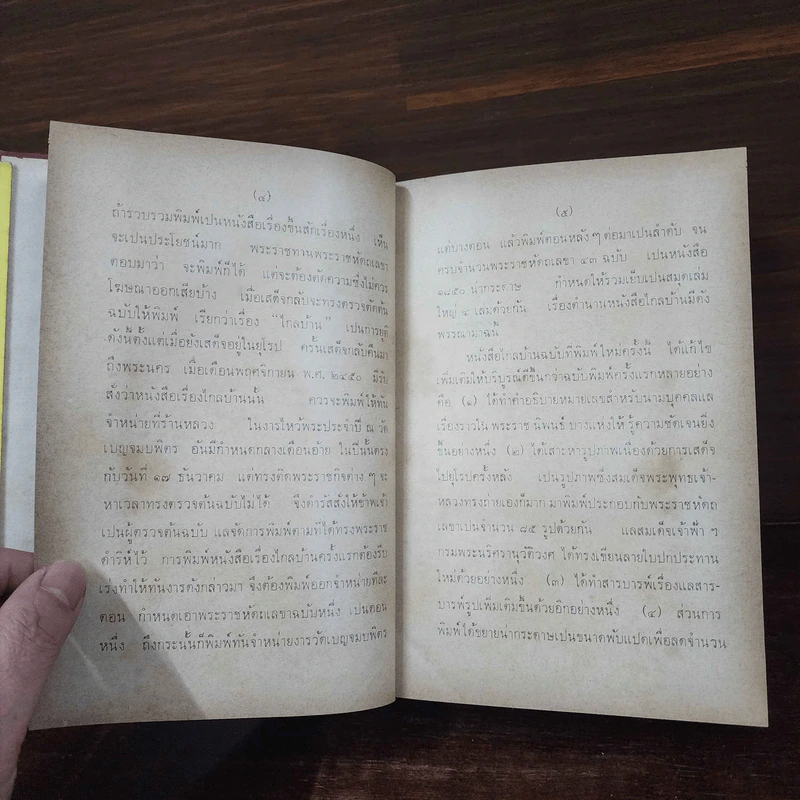 (๔)
ถ้ารวบรวมพิมพ์เปนหนังสือเรื่องขึ้นสักเรื่องหนึ่ง เห็น
จะเปนประโยชน์มาก พระราชทานพระราชหัดถเลขา
ตอบมาว่า จะพิมพ์ก็ได้ แต่จะต้องตัดความซึ่งไม่ควร
โฆษณาออกเสียบ้าง เมื่อเสด็จกลับจะทรงตรวจตัดต้น
ฉบับให้พิมพ์ เรียกว่าเรื่อง “ไกลบ้าน” เปนการยุติ
ดังนี้ตั้งแต่เมื่อยังเสด็จอยู่ในยุโรป ครั้นเสด็จกลับคืนมา
ถึงพระนคร เมื่อเดือนพฤศจิกายน พ.ศ. ๒๔๕๐ มีรับ
สั่งว่าหนังสือเรื่องไกลบ้านนั้น ควรจะพิมพ์ให้ทัน
จำหน่ายที่ร้านหลวง ในงารไหว้พระประจำปี ณ วัด
เบญจมบพิตร อันมีกำหนดกลางเดือนอ้าย ในปีนั้นตรง
กับวันที่ ๑๗ ธันวาคม แต่ทรงติดพระราชกิจต่าง ๆ จะ
หาเวลาทรงตรวจต้นฉบับไม่ได้ จึงดำรัสสั่งให้ข้าพเจ้า
เปนผู้ตรวจต้นฉบับ แลจัดการพิมพ์ตามที่ได้ทรงพระราช
ดำริห์ไว้ การพิมพ์หนังสือเรื่องไกลบ้านครั้งแรกต้องรีบ
เร่งทำให้ทันงารดังกล่าวมา จึงต้องพิมพ์ออกจำหน่ายทีละ
ตอน กำหนดเอาพระราชหัดถเลขาฉบับหนึ่ง เปนตอน
หนึ่ง ถึงกระนั้นก็พิมพ์ทันจำหน่ายงารวัดเบญจมบพิตร
(๕)
แต่บางตอน แล้วพิมพ์ตอนหลัง ๆ ต่อมาเปนลำดับ จน
ครบจำนวนพระราชหัดถเลขา ๔๓ ฉบับ เปนหนังสือ
๑๘๕๐ น่ากระดาษ กำหนดให้รวมเย็บเปนสมุดเล่ม
ใหญ่ ๔ เล่มด้วยกัน เรื่องตำนานหนังสือไกลบ้านมีดัง
พรรณามาฉนี้
หนังสือไกลบ้านฉบับที่พิมพ์ใหม่ครั้งนี้ ได้แก้ไข
เพิ่มเติมให้บริบูรณ์ดีขึ้นกว่าฉบับพิมพ์ครั้งแรกหลายอย่าง
คือ (๑) ได้ทำคำอธิบายหมายเลขสำหรับนามบุคคลแล
เรื่องราวใน พระราช นิพนธ์ บางแห่งให้ รู้ความชัดเจนยิ่ง
ขึ้นอย่างหนึ่ง (๒) ได้เสาะหารูปภาพเนื่องด้วยการเสด็จ
ไปยุโรปครั้งหลัง เปนรูปภาพซึ่งสมเด็จพระพุทธเจ้า-
หลวงทรงถ่ายเองก็มาก มาพิมพ์ประกอบกับพระราชหัดถ
เลขาเปนจำนวน ๘๕ รูปด้วยกัน แลสมเด็จเจ้าฟ้า ฯ
กรมพระนริศรานุวัติวงศ ได้ทรงเขียนลายใบปกประทาน
ใหม่ด้วยอย่างหนึ่ง (๓) ได้ทำสารบารพ์เรื่องแลสาร-
บารพ์รูปเพิ่มเติมขึ้นด้วยอีกอย่างหนึ่ง (๔) ส่วนการ
พิมพ์ได้ขยายน่ากระดาษเปนขนาดพับแปดเพื่อลดจำนวน